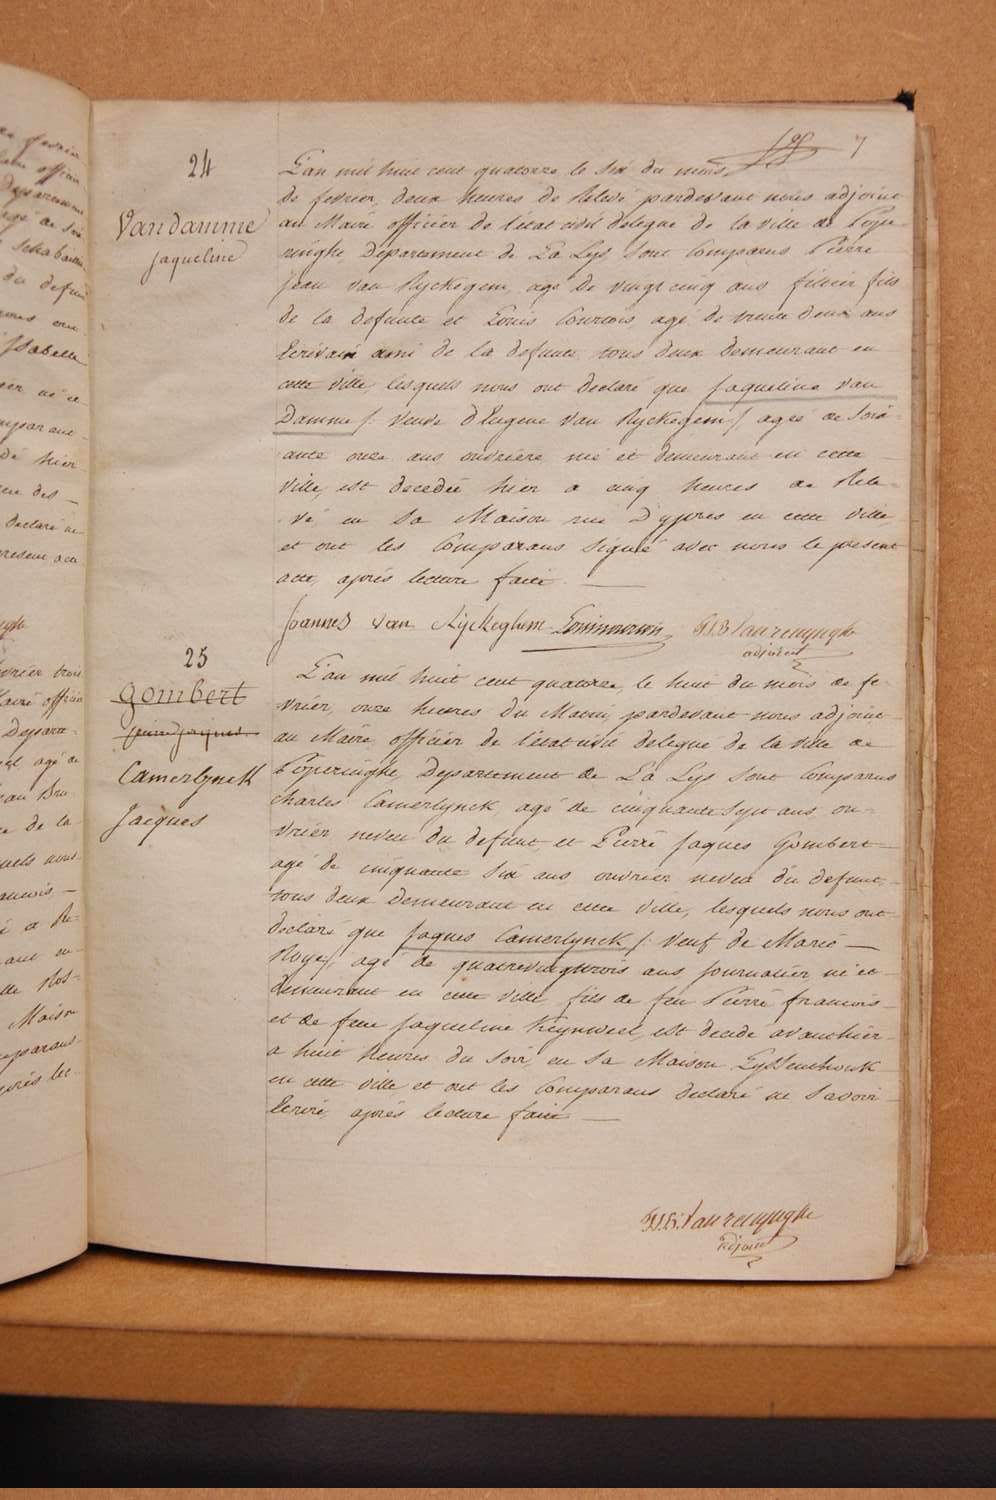 7
24
Vandamme
Jaqueline
L'an mil huit cent quatorze le six du mois
de fevrier, deux heures de Relevé pardevant nous adjoint
au Maire officier de l'état civil delegué de la ville de Pope-
ringhe, Departement de La Lys, sont Comparus Pierre
Jean van Ryckegem, agé de vingt cinq ans filtier fils
de la defunte et Louis Courtois, agé de trente deux ans
Ecrivain ami de la defunte, tous deux demeurant en
cette ville, lesquels nous ont declaré que Jaqueline van
Damme /: veuve d'Eugene Van Ryckegem / agée de Soix-
ante onze ans ouvrière né et demeurant en cette
ville, est decedée hier a cinq heures de Rele-
vé en Sa Maison rue D'ypres en cette ville
et ont les Comparans Signés avec nous le present
acte, après lecture faite.
Joannes van Rijckeghem
adjoint
25
Gombert
Pierre Jaques
Camerlynck
Jacques
L'an mil huit cent quatorze, le huit du mois de fe-
vrier, onze heures du Matin, pardevant nous adjoint
au Maire officier de l'état civil delegué de la ville de
Poperinghe, Departement de La Lys sont Comparus
charles Camerlynck, agé de cinquante Sept ans, ou-
vrier neveu du defunt, et Pierre Jaques Gombert
agé de cinquante Six ans, ouvrier neveu du defunt,
tous deux demeurant en cette ville, lesquels nous ont
declaré que Jaques Camerlynck /: veuf de Marie
Roye /, agé de quatrevingttrois ans journalier né et
demeurant en cette ville fils de feu Pierre francois
et de feue Jaqueline est decedé avanthier
a huit heures du Soir, en Sa Maison
en cette ville, et ont les Comparans declaré ne Savoir
Ecrire, après lecture faite
adjoint